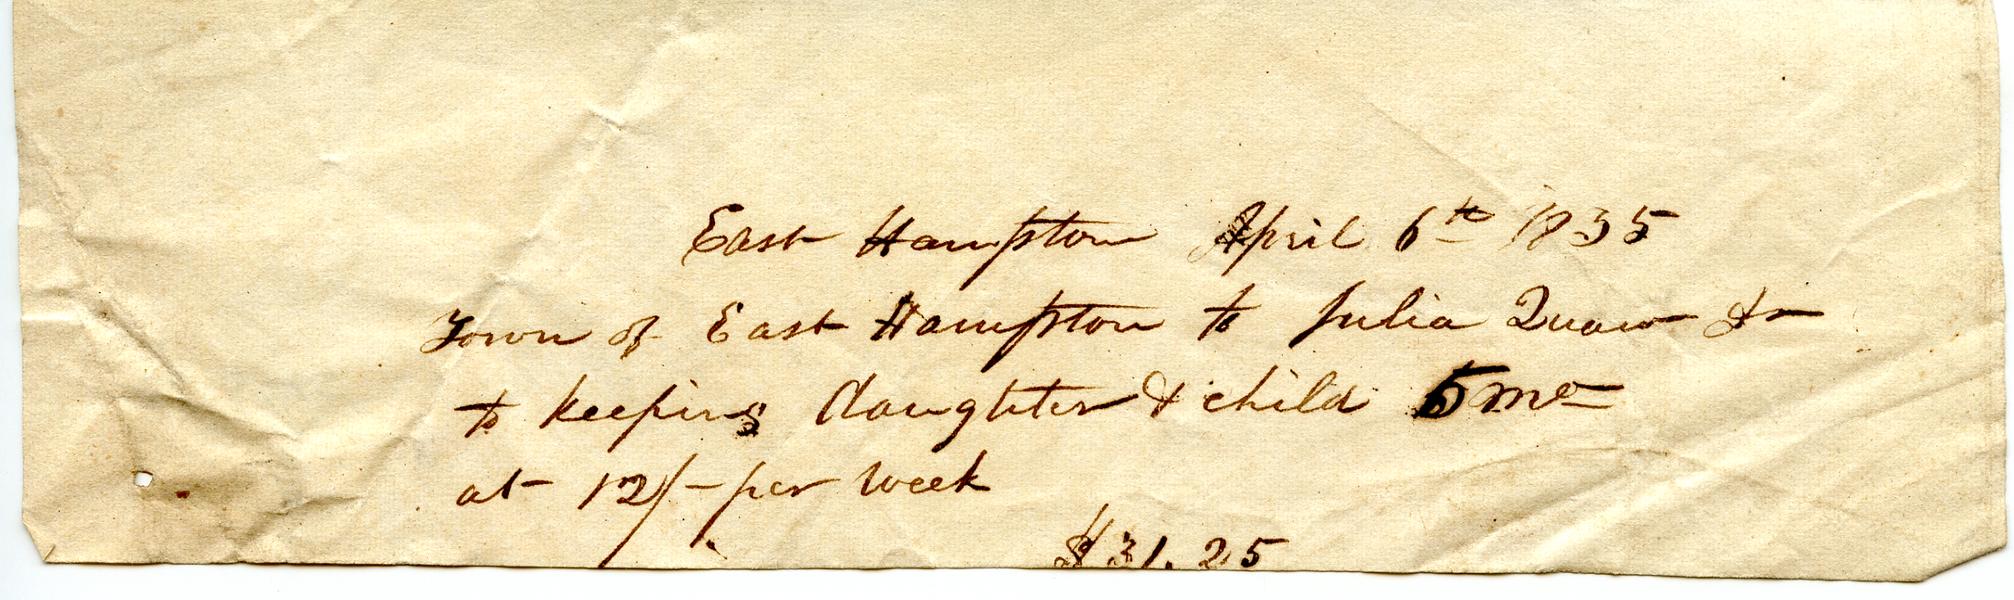 East Hampton April 6th 1835
Town of East Hampton to Julia Quaw Dr
to keeping daughter & child 5 mo
at 12/- per week
$31.25